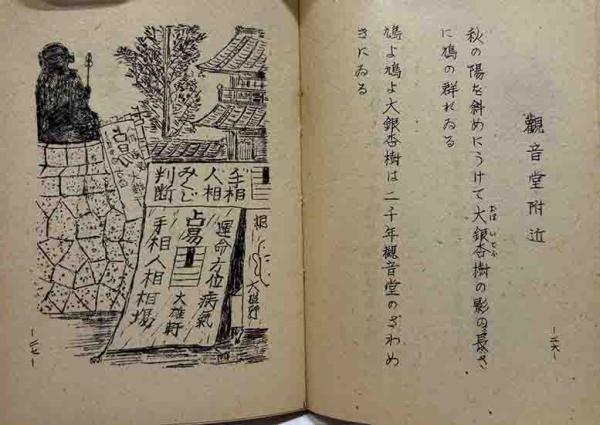 觀音堂附近
秋の陽を斜めにうけて大銀杏樹の影の長さ
おほいてふ
に鳩の群れゐる
鳩よ鳩よ大銀杏樹は二千年觀音堂のざわめ
きにゐる
—二六—
手相
人相
みくじ
判断
占易
運命方位病氣
大雄軒
手相人相相場
大雄軒
—二七—